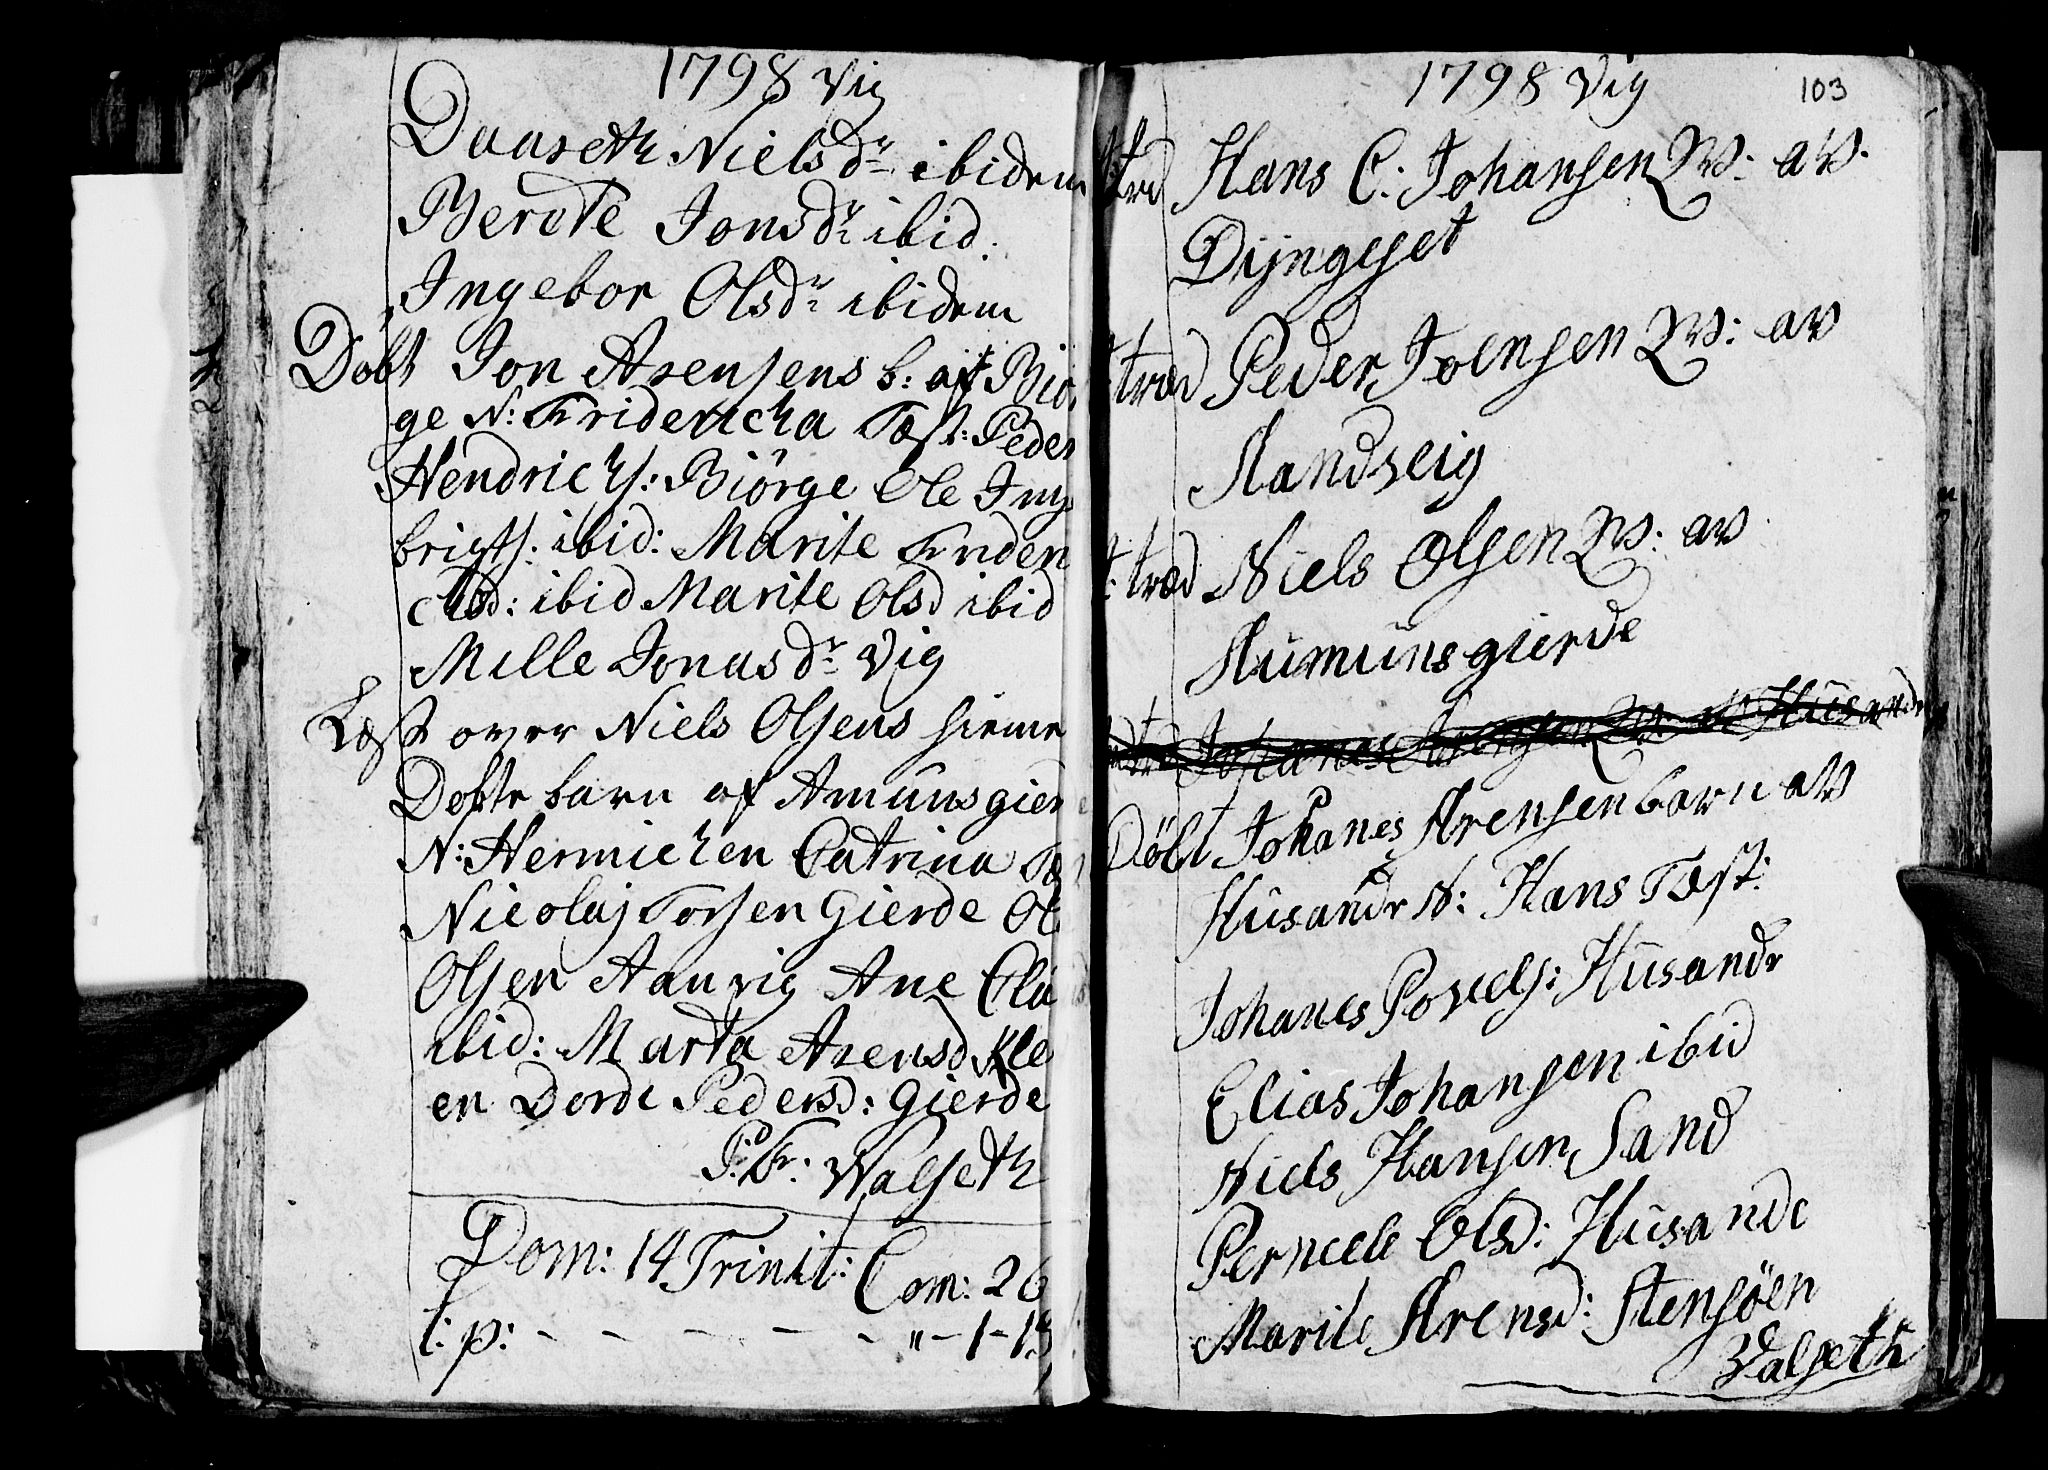 1798 Vig
Daaseth Nielsdr ibidem
Berete Jonsdr ibid:
Ingebor Olsdr ibidem
Döbt Jon Arensens b: af Biör
ge N: Fridericha Tæst: Peder
Hendrichs: Biörge Ole Inge
brigts. ibid: Marite Frider
chsd: ibid Marite Olsd ibid
Mille Jonasdr Vig
Læst over Niels Olsens hieme
Döbte barn af Amunsgierd
N: Hermichen Catrina
Nicolaj Torsen Gierde Ol
Olsen Aanvig Ane
ibid: Marta Arensd Kle
en Dorde Pedersd: Gierde
P: Fr: Walseth
Dom: 14 Trinit: Com: 26
t: p: - - - - - " - 1 - 13
1798 Vig 103
træd Hans C: Johansen W: av
Dijngeset
træd Peder Joensen W: av
Aandveig
træd Niels Olsen W: av
Aumunsgierde
Johanes Arensen W: av Husandr
Döbt Johanes Arensen barn av
Husandr N: Hans Tæst:
Johanes Povels: Husandr
Elias Johansen ibid
Niels Hansen Sand
Pernele Olsd: Husande
Marite Arensd: Stensöen
Valseth